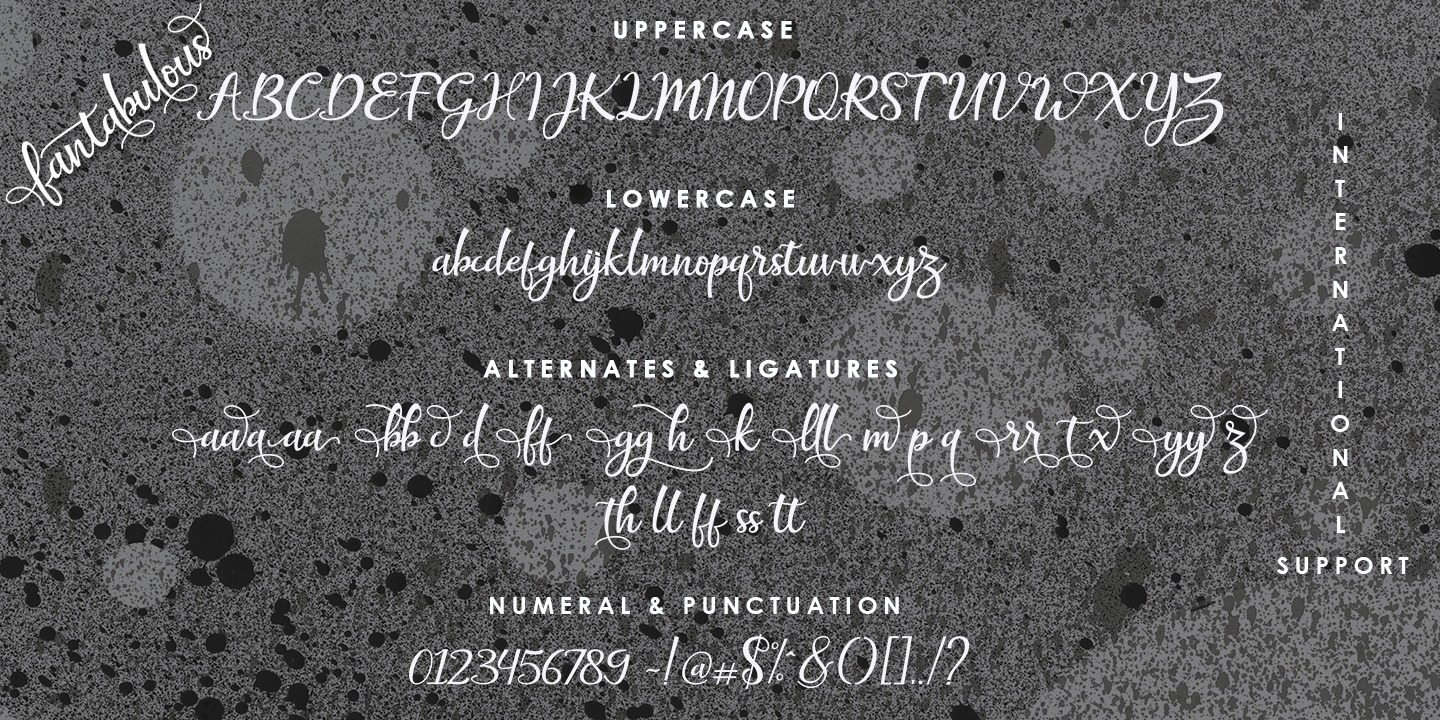 fantabulous
UPPERCASE
ABCDEFGHIJKLMNOPQRSTUVWXYZ
LOWERCASE
abcdefghijklmnopqrstuvwxyz
ALTERNATES & LIGATURES
aaaqaa bb d d ff gg h k lll m p q rr t x yy z
th ll ff ss tt
NUMERAL & PUNCTUATION
0123456789 ~!@#$%^&()[].,/?
INTERNATIONAL
SUPPORT